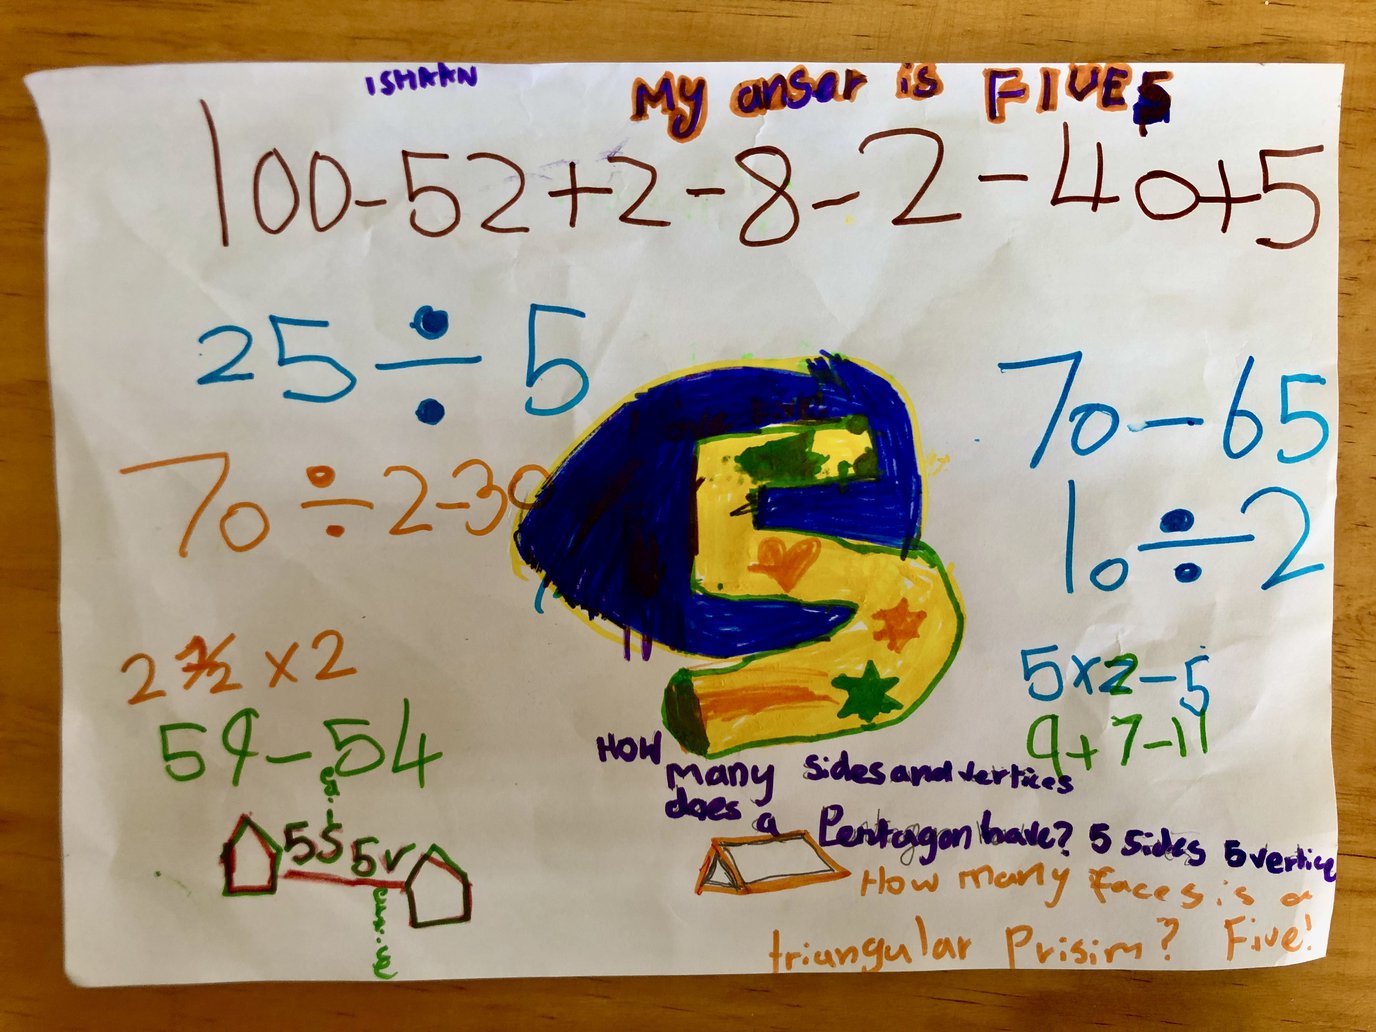 ISHAAN
My ansar is FIVE 5
100-52+2-8-2-40+5
25÷5
70-65
70÷2-30
10÷2
2 ½ x2
5x2-5
59-54
9+7-11
How many sides and vertices
does a Pentagon have? 5 sides 5 vertice
5S 5v
How many faces is a
triangular Prisim? Five!